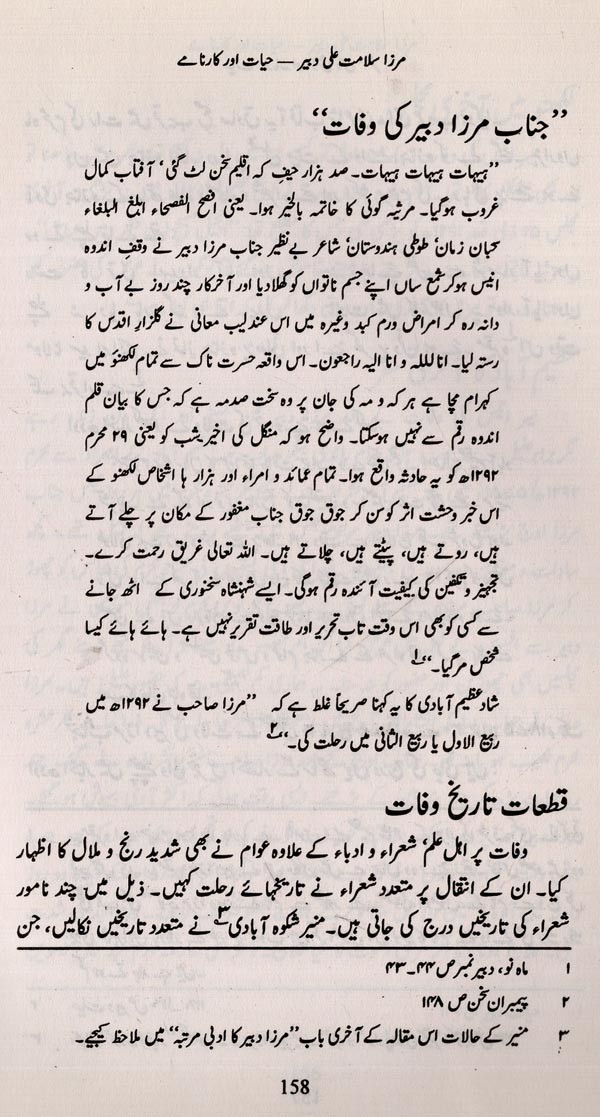 مرزا سلامت علی دبیر — حیات اور کارنامے
’’جناب مرزا دبیر کی وفات‘‘
’’ہیہات ہیہات ہیہات۔ صد ہزار حیف کہ اقلیم سخن لٹ گئی‘ آفتاب کمال
غروب ہوگیا۔ مرثیہ گوئی کا خاتمہ بالخیر ہوا۔ یعنی افصح الفصحاء ابلغ البلغاء
سحبان زمان‘ طوطی ہندوستان‘ شاعر بے نظیر جناب مرزا دبیر نے وقفِ اندوہ
انیس ہوکر شمع ساں اپنے جسم ناتواں کو گھلا دیا اور آخرکار چند روز بے آب و
دانہ رہ کر امراض ورم کبد وغیرہ میں اس عندلیب معانی نے گلزارِ اقدس کا
رستہ لیا۔ انا للہ و انا الیہ راجعون۔ اس واقعہ حسرت ناک سے تمام لکھنؤ میں
کہرام مچا ہے ہر کہ و مہ کی جان پر وہ سخت صدمہ ہے کہ جس کا بیان قلم
اندوہ رقم سے نہیں ہوسکتا۔ واضح ہو کہ منگل کی اخیر شب کو یعنی ۲۹ محرم
۱۲۹۲ھ کو یہ حادثہ واقع ہوا۔ تمام عمائد و امراء اور ہزار ہا اشخاص لکھنو کے
اس خبر وحشت اثر کو سن کر جوق جوق جناب مغفور کے مکان پر چلے آتے
ہیں، روتے ہیں، پیٹتے ہیں، چلاتے ہیں۔ اللہ تعالی غریق رحمت کرے۔
تجہیز و تکفین کی کیفیت آئندہ رقم ہوگی۔ ایسے شہنشاہ سخنوری کے اٹھ جانے
سے کسی کو بھی اس وقت تاب تحریر اور طاقت تقریر نہیں ہے۔ ہائے ہائے کیسا
شخص مرگیا۔‘‘۱
شاد عظیم آبادی کا یہ کہنا صریحاً غلط ہے کہ ’’مرزا صاحب نے ۱۲۹۲ھ میں
ربیع الاول یا ربیع الثانی میں رحلت کی۔‘‘۲
قطعات تاریخ وفات
وفات پر اہل علم‘ شعراء و ادباء کے علاوہ عوام نے بھی شدید رنج و ملال کا اظہار
کیا۔ ان کے انتقال پر متعدد شعراء نے تاریخہائے رحلت کہیں۔ ذیل میں چند نامور
شعراء کی تاریخیں درج کی جاتی ہیں۔ منیر شکوہ آبادی۳ نے متعدد تاریخیں نکالیں، جن
۱ ماہ نو، دبیر نمبر ص ۴۴۔۴۳
۲ پیمبران سخن ص ۱۴۸
۳ منیر کے حالات اس مقالہ کے آخری باب ’’مرزا دبیر کا ادبی مرتبہ‘‘ میں ملاحظہ کیجیے۔
158